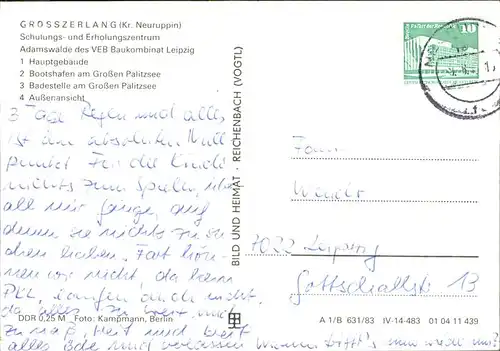 GROSSZERLANG (Kr. Neuruppin)
Schulungs- und Erholungszentrum
Adamswalde des VEB Baukombinat Leipzig
1 Hauptgebäude
2 Bootshafen am Großen Palitzsee
3 Badestelle am Großen Palitzsee
4 Außenansicht
3 Tage Regen und alles
ist am absoluten Null
punkt. Für die Kinder
nichts zum Spielen, über
all nur
denen sie nichts zu su
chen haben. Fort kön-
nen wir nicht, da kein
PKW, auch nicht,
da alles zu weit und
zu naß. Weit und breit
alles öde und verlassen
BILD UND HEIMAT · REICHENBACH (VOGTL)
10
Fam.
7022 Leipzig
Gottschallstr. 13
DDR 0,25 M Foto: Kampmann, Berlin
A 1/B 631/83 IV-14-483 01 04 11 439